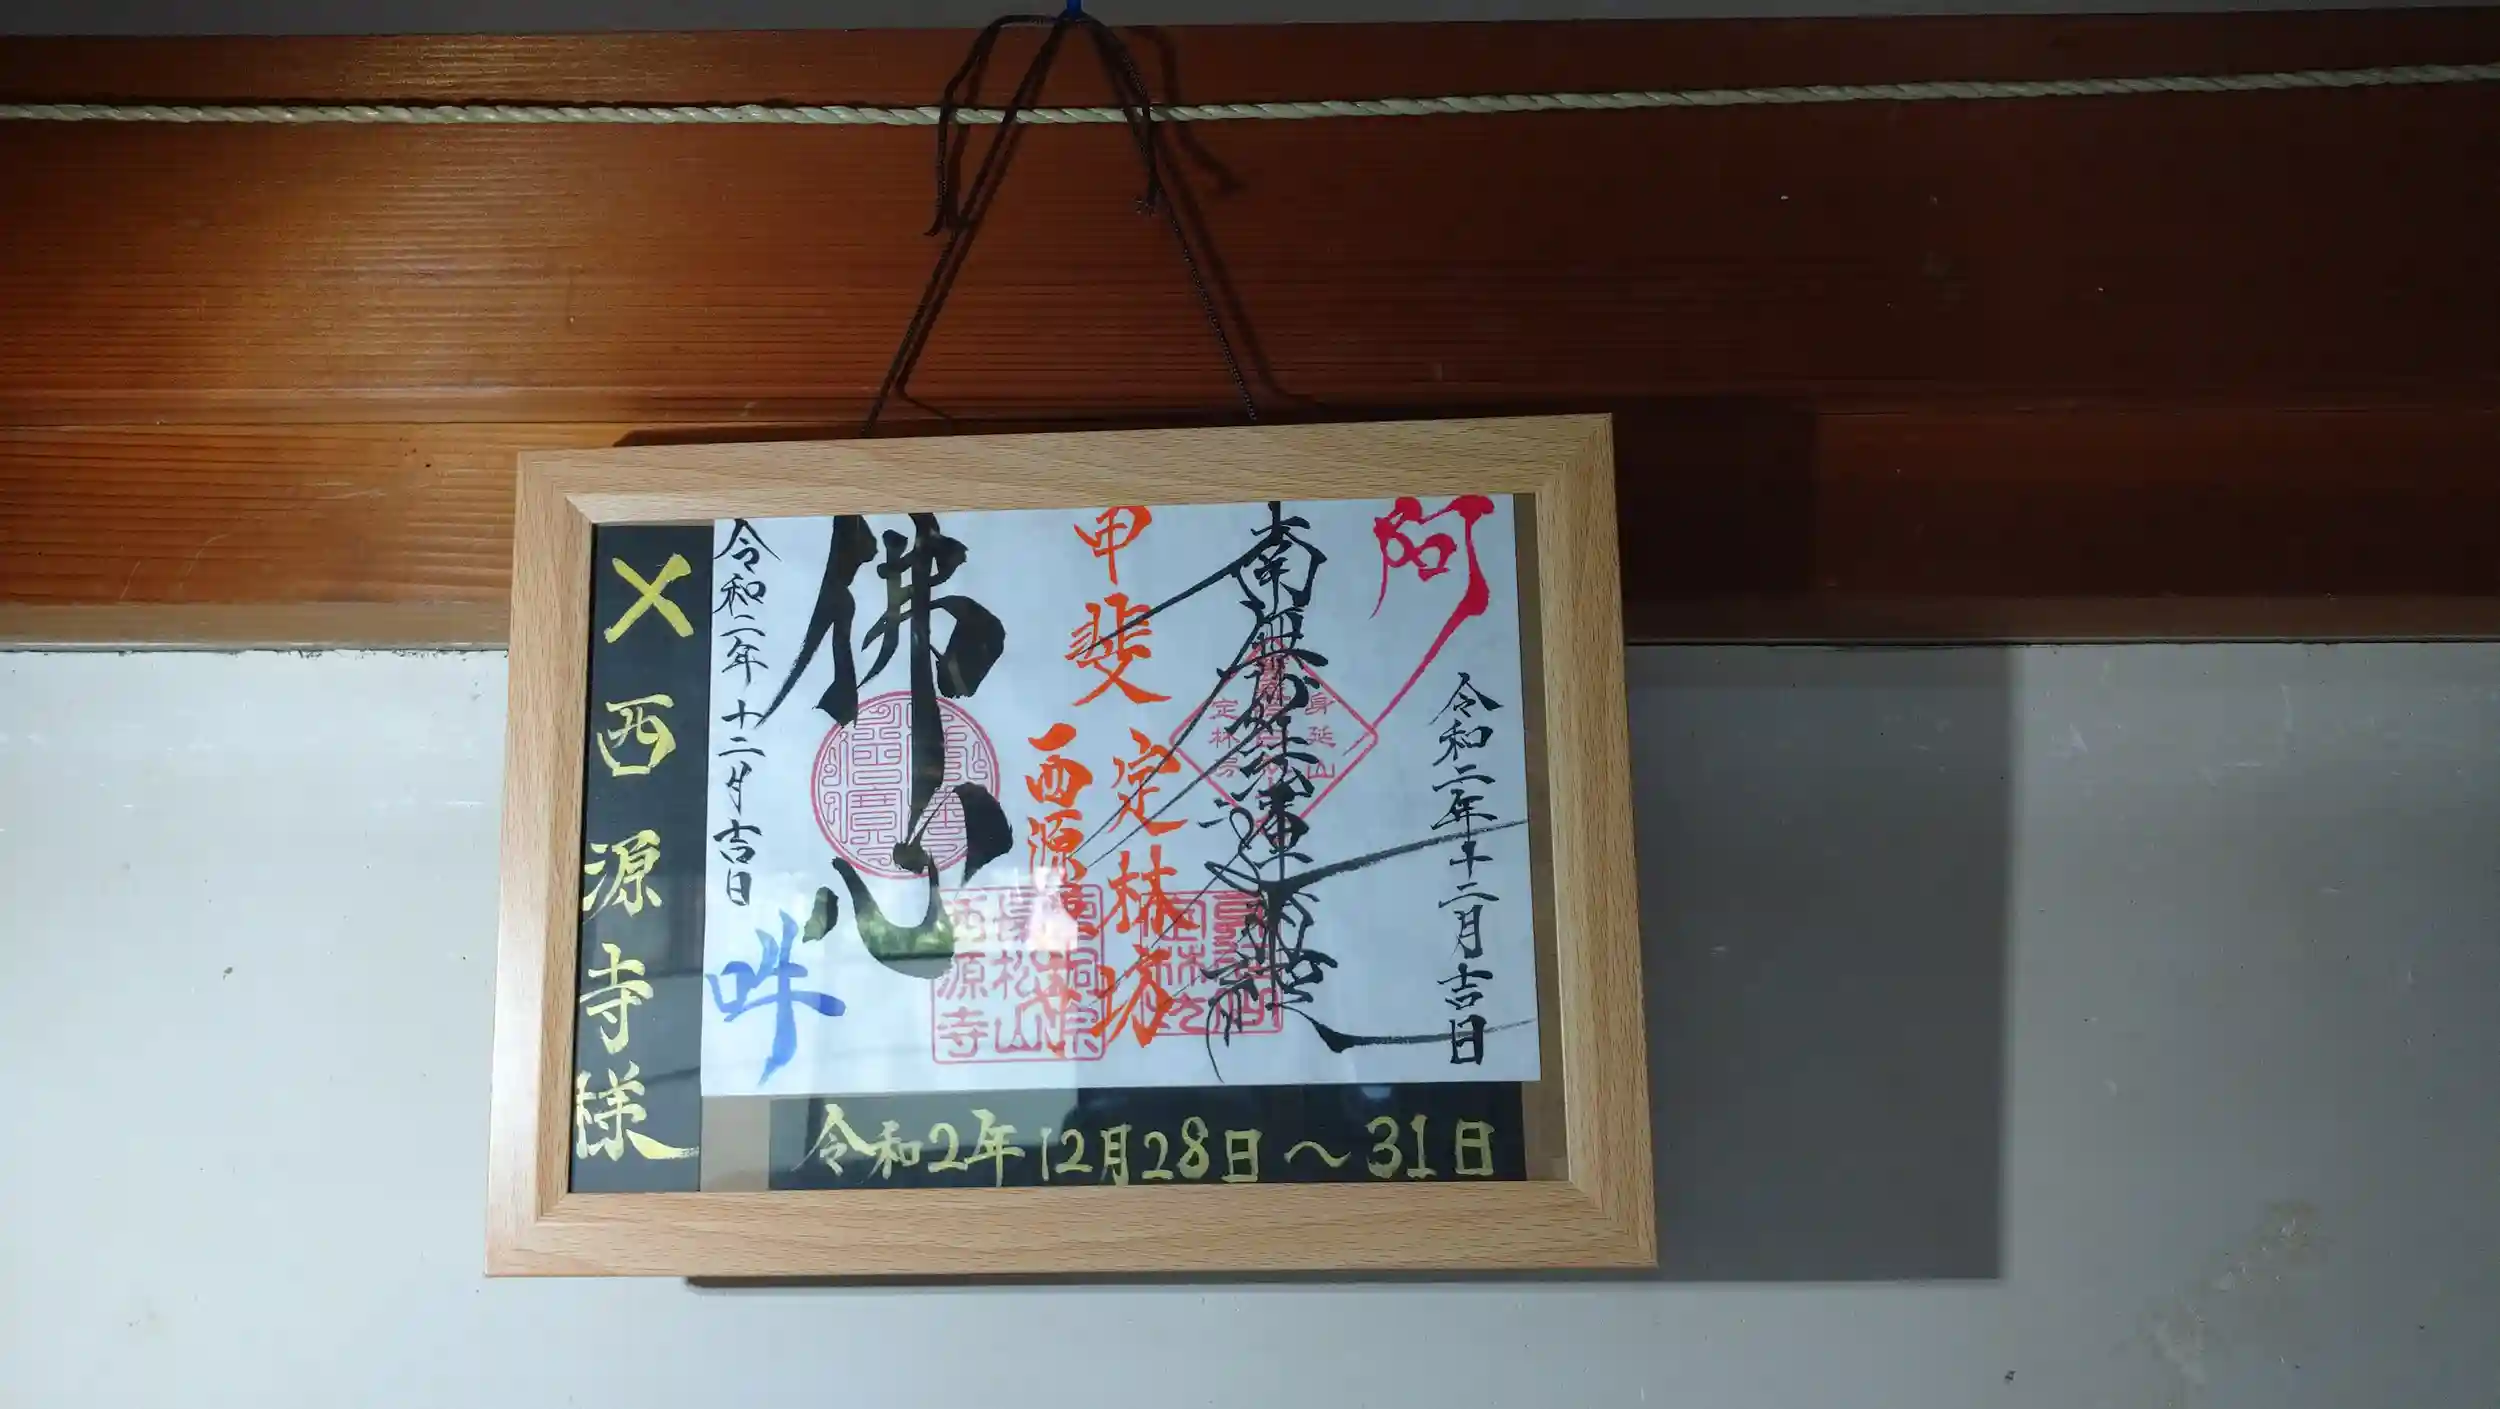 阿
令和二年十二月吉日
南無妙法蓮華経
身延山
定林坊
甲斐 定林坊
西源寺
佛心
曹洞宗
長松山
西源寺
吽
令和二年十二月吉日
×西源寺様
令和2年12月28日～31日